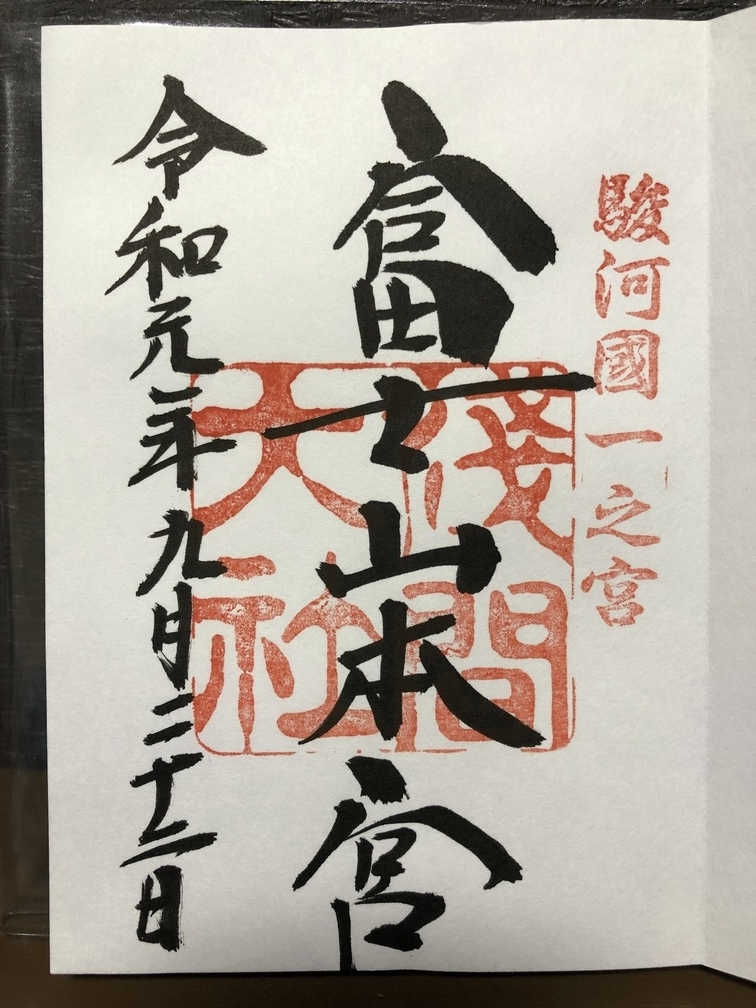 駿河國一之宮
富士山本宮
淺間
大社
令和元年九月二十二日